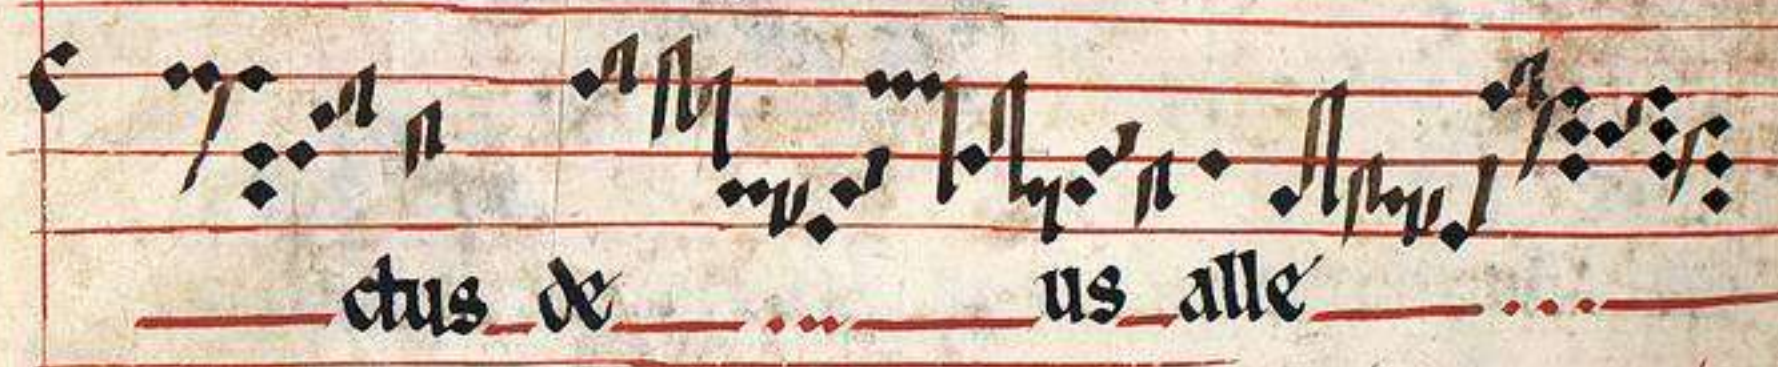 ctus de us alle